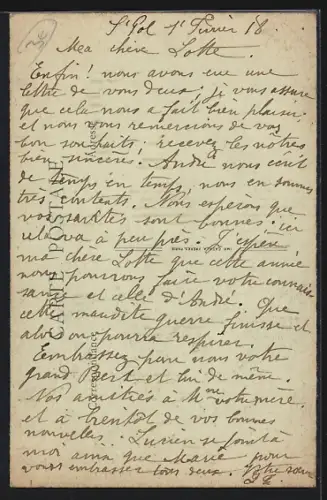 St Pol 1er Février 18
Ma chère Lotte
Enfin! nous avons eue une
lettre de vous deux. je vous assure
que cela nous a fait bien plaisir
et nous vous remercions de vos
bon souhaits, recevez les nôtres
bien sincères. André nous écrit
de temps en temps, nous en sommes
très contents. Nous espérons que
vos santés sont bonnes. ici
cela va à peu près. J'espère
ma chère Lotte que cette année
nous pourrons faire votre connais
sance et celle d'André. Que
cette maudite guerre finisse et
alors on pourra respirer.
Embrassez pour nous votre
grand Bert et lui de même.
Nos amitiés à Mme votre mère
et à bientôt de vos bonnes
nouvelles. Lucien se joint à
moi ainsi que Marie pour
vous embrasser tous deux. Votre
CARTE POSTALE
Correspondance
Adresse